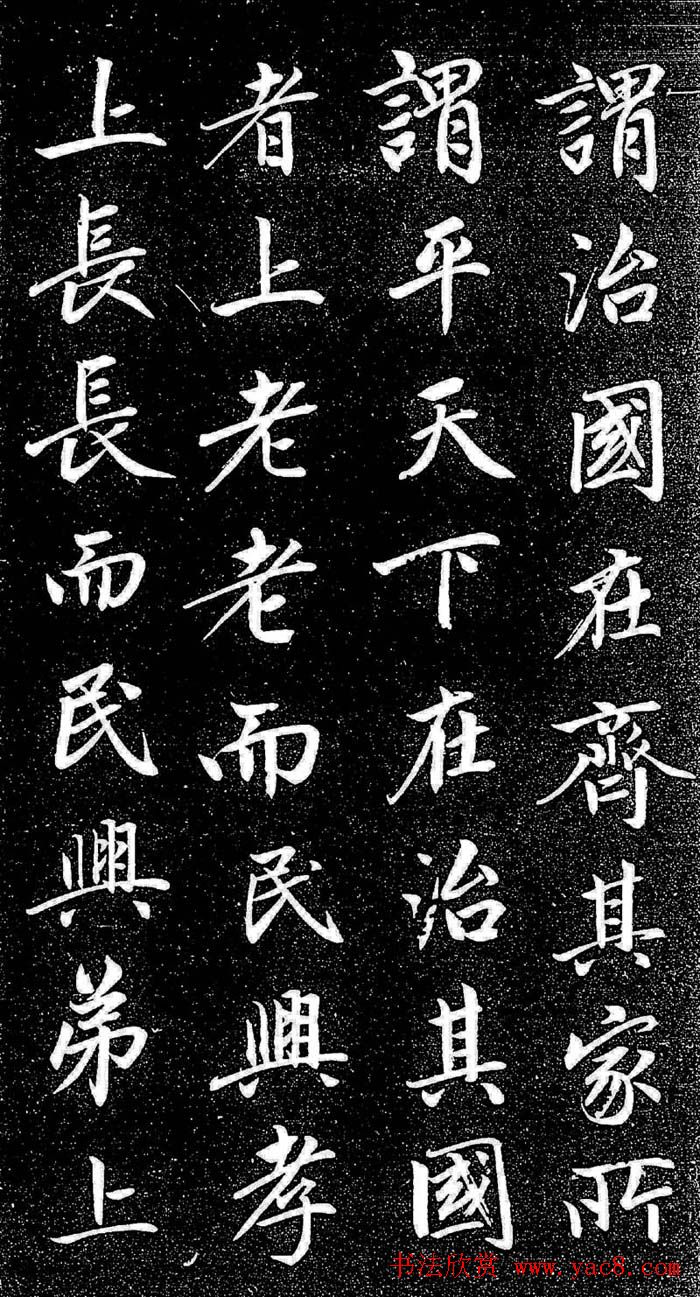 謂治國在齊其家所
謂平天下在治其國
者上老老而民興孝
上長長而民興弟上
书法欣赏 www.yac8.com